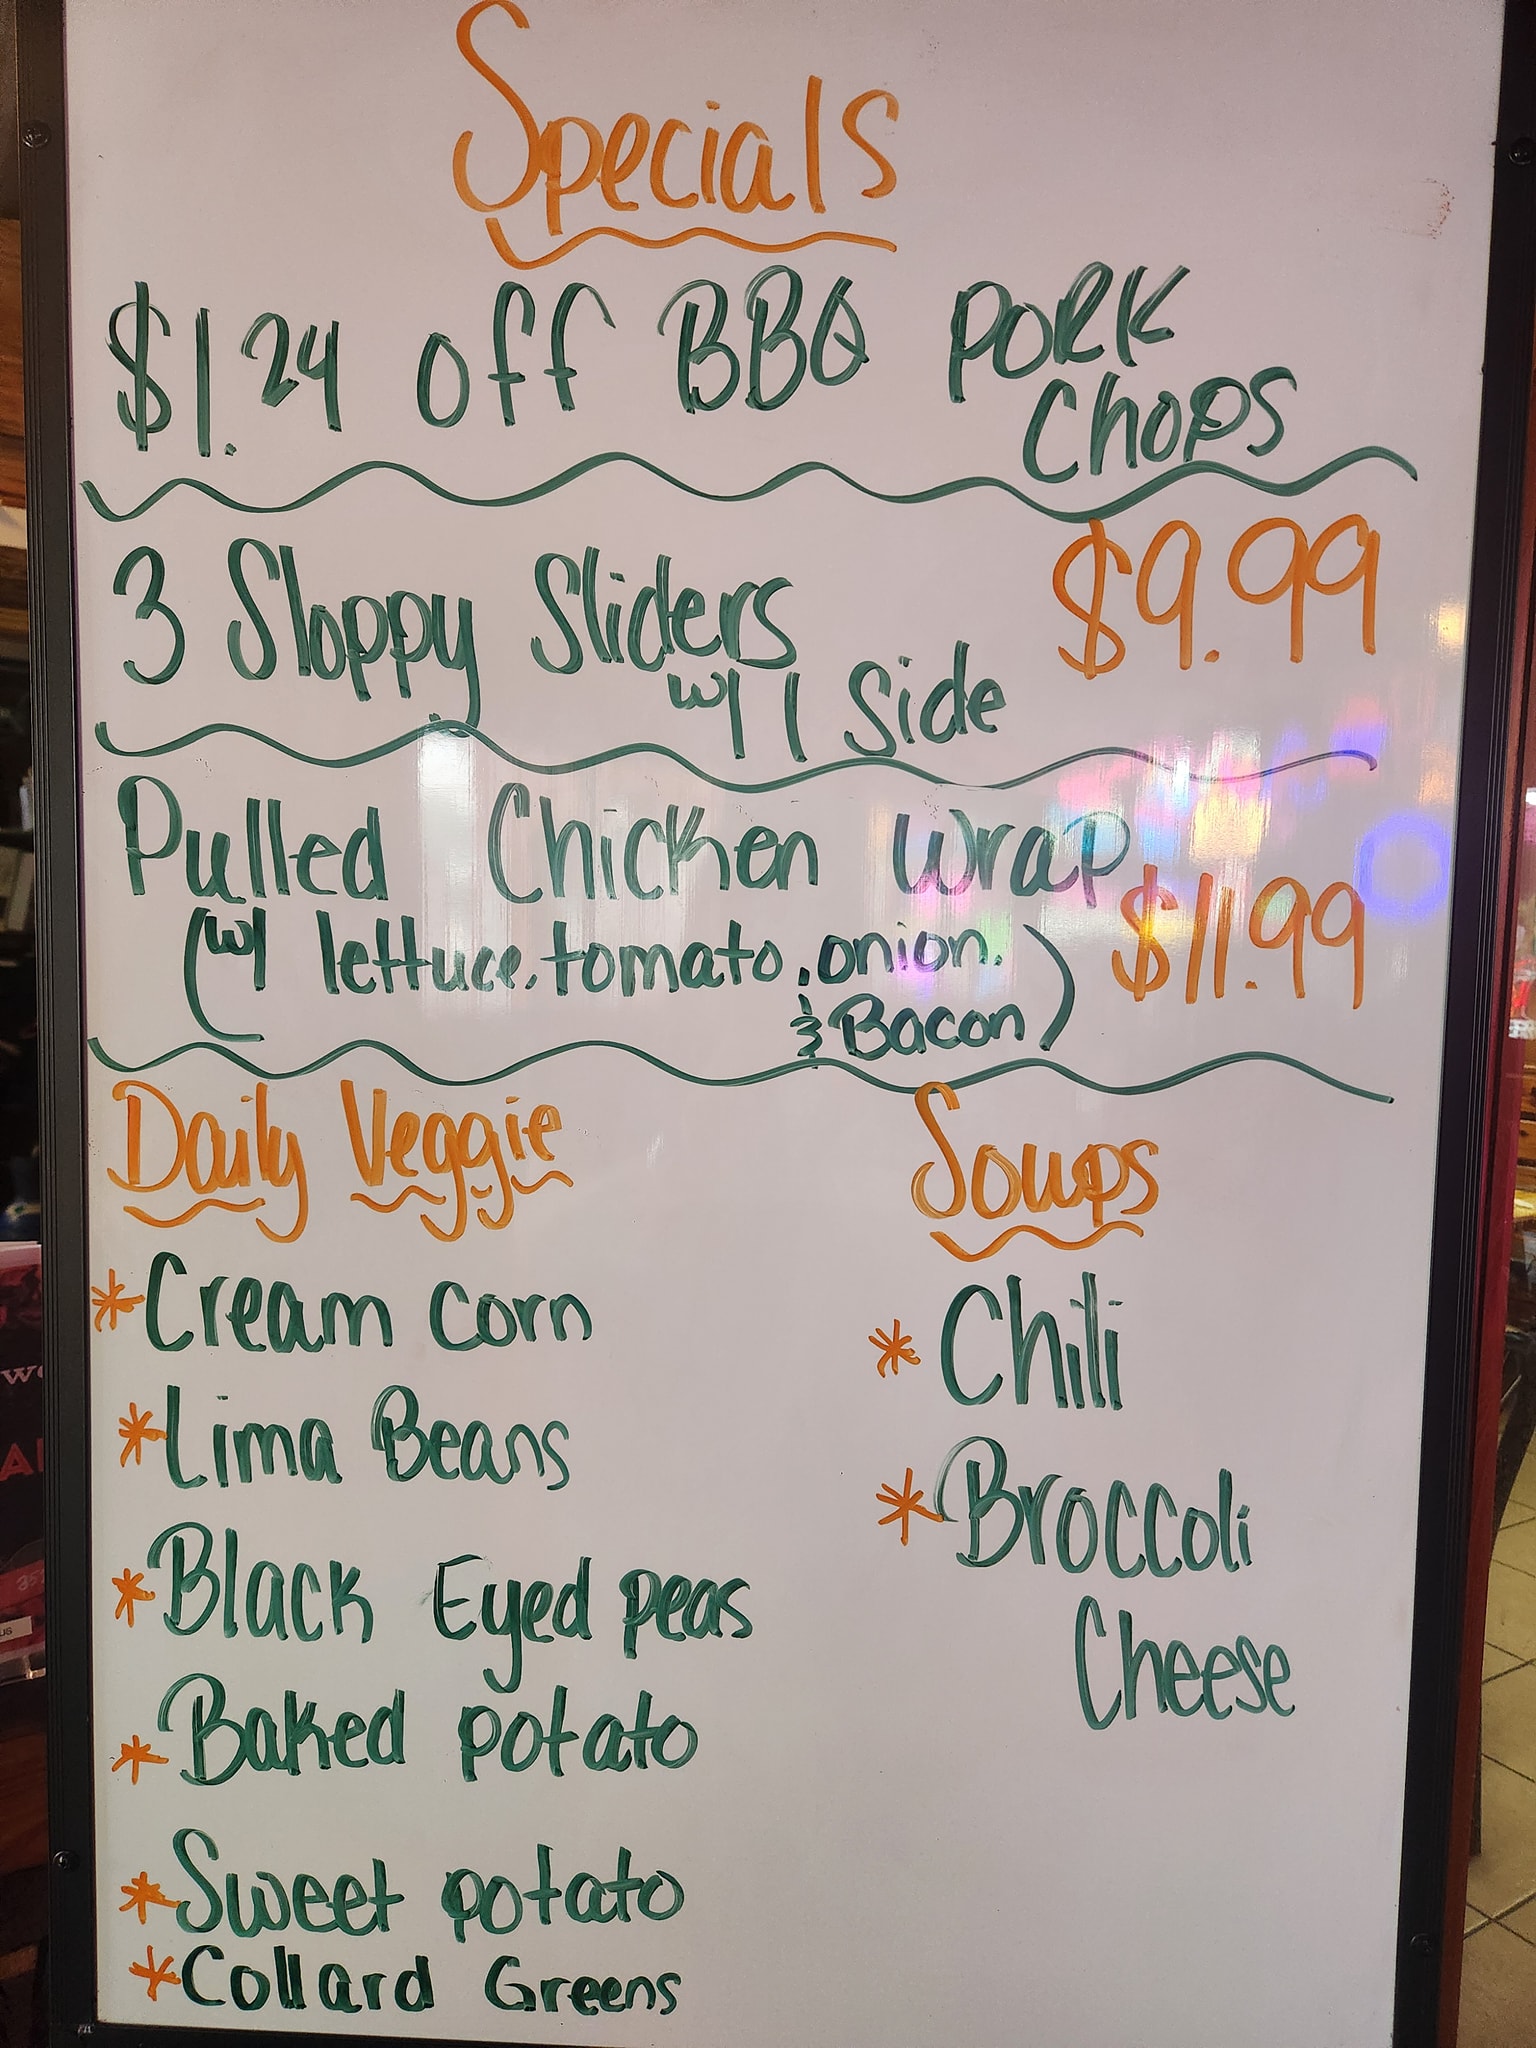 Specials
$1.24 off BBQ Pork
Chops
3 Sloppy Sliders $9.99
w/ 1 side
Pulled Chicken Wrap
(w/ lettuce, tomato, onion, $11.99
& Bacon)
Daily Veggie
Soups
*Cream corn
*Lima Beans
*Black Eyed peas
*Baked potato
*Sweet potato
*Collard Greens
*Chili
*Broccoli
Cheese